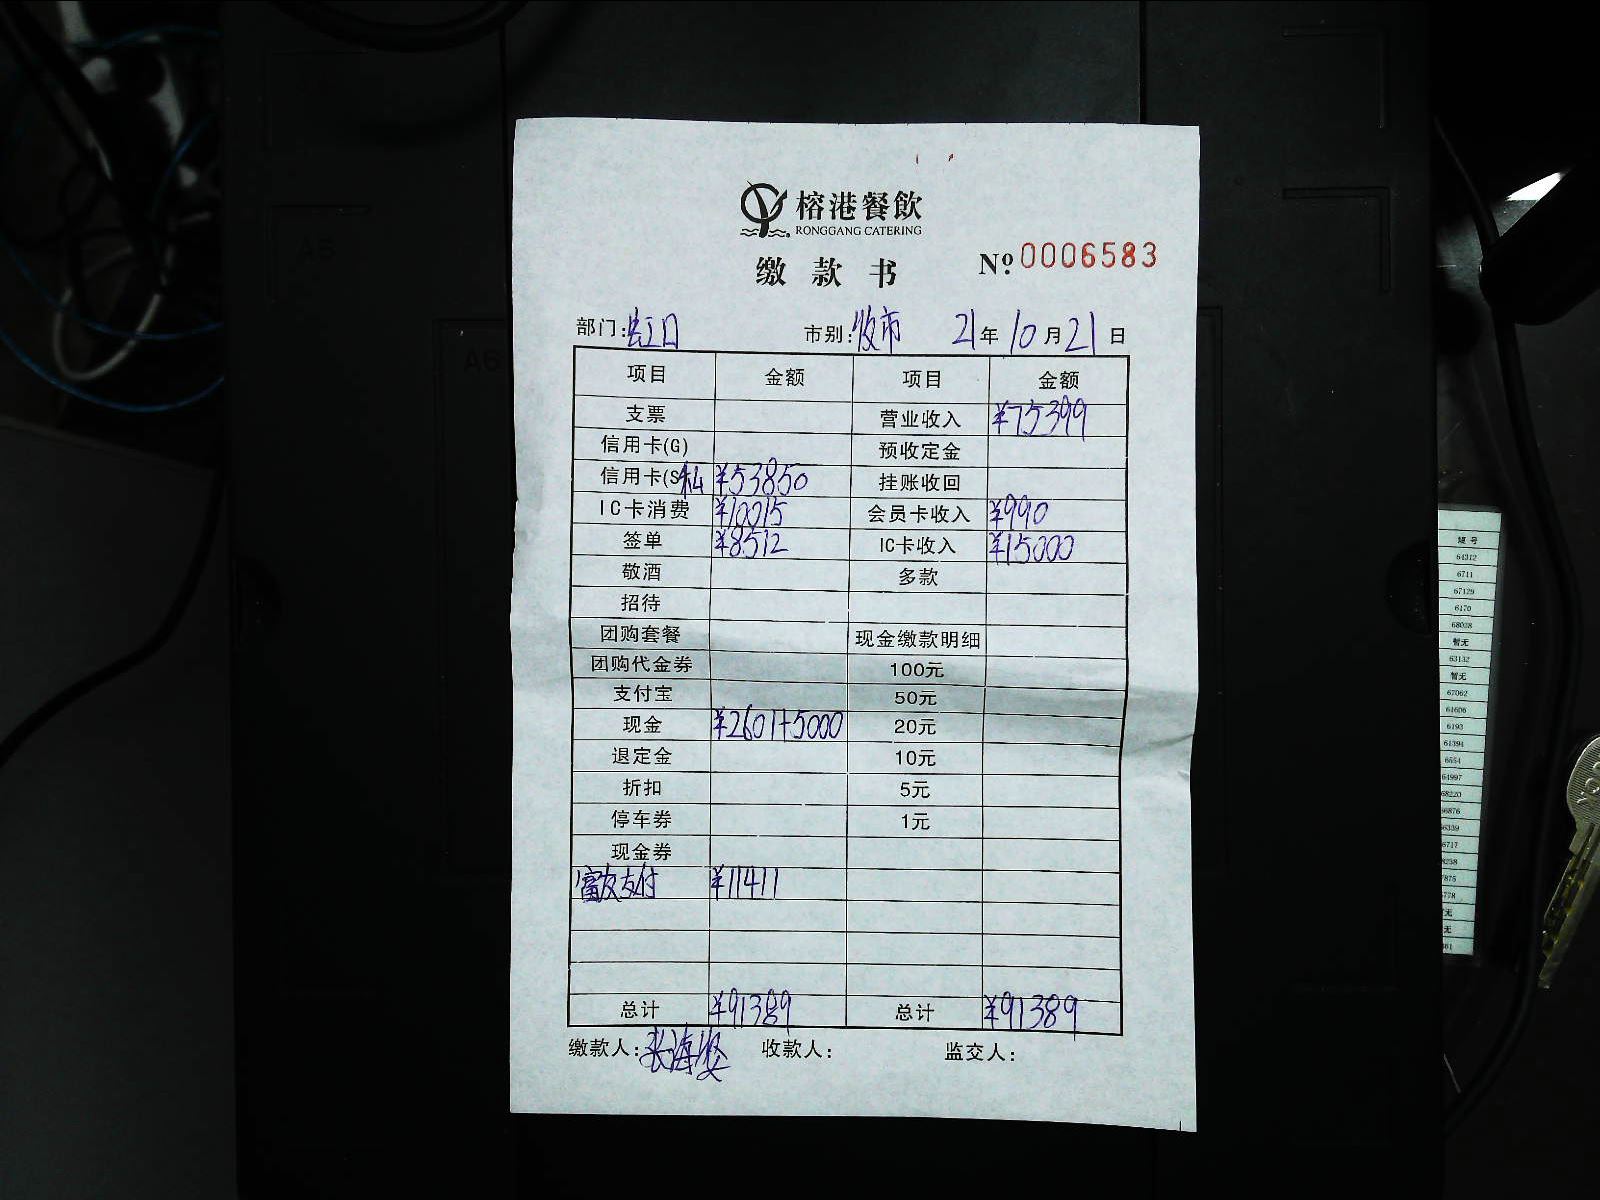 榕港餐飲
RONGGANG CATERING
缴款书 № 0006583
部门:虹口 市别:收市 21年10月21日
项目 金额 项目 金额
支票 营业收入 ¥75399
信用卡(G) 预收定金
信用卡(S 私 ¥53850 挂账收回
IC卡消费 ¥10015 会员卡收入 ¥990
签单 ¥8512 IC卡收入 ¥15000
敬酒 多款
招待
团购套餐 现金缴款明细
团购代金券 100元
支付宝 50元
现金 ¥2601+5000 20元
退定金 10元
折扣 5元
停车券 1元
现金券
富友支付 ¥11411
总计 ¥91389 总计 ¥91389
缴款人: 张海 收款人: 监交人:
A5
A6
短号
64312
6711
67129
6170
68028
暂无
63132
暂无
67062
61606
6193
61394
6554
64997
68220